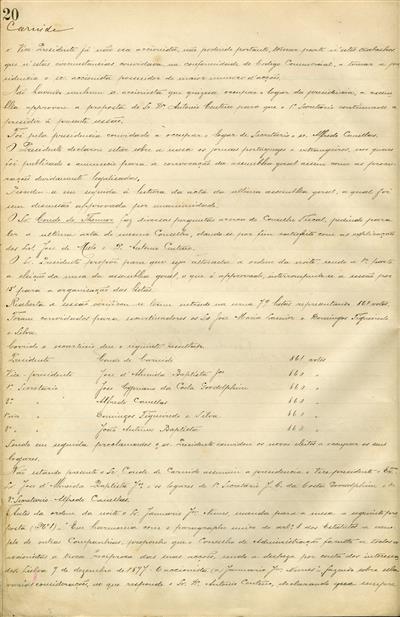 20
Carnide
o Vice Presidente já não era accionista, não podendo portanto, tomar parte n'estes trabalhos
que n'estas circumstancias convidava na conformidade do Codigo Commercial, a tomar a pre
sidencia o sr. accionista possuidor de maior numero d'acções.
Não havendo nenhum sr. accionista que quizesse occupar o logar da presidencia, a assem
bléa approvou a proposta do Sr. Dr. Antonio Centeno para que o 1º Secretario continuasse a
presidir á presente sessão.
Foi pela presidencia convidado a occupar o logar de Secretario o sr. Alfredo Canellas.
O Presidente declarou estar sobre a mesa os jornaes portuguezes e extrangeiros, em que
foi publicado o annuncio para a convocação da assembléa geral assim como as procu
rações devidamente legalisadas.
Procedeu-se em seguida á leitura da acta da ultima assembléa geral, a qual foi
sem discussão approvada por unanimidade.
O Sr. Conde de Thomar faz diversas perguntas acerca do Conselho Fiscal, pedindo para
ler a ultima acta do mesmo Conselho, dando-se por fim satisfeito com as explicações
dos Srs. José de Mello e Dr. Antonio Centeno.
O Sr. Presidente propôz para que seja alterada a ordem da noite sendo a 1ª parte
a eleição da mesa da assembléa geral, o que é approvado, interrompendo-se a sessão por
15' para a organisação das listas.
Reaberta a sessão verificou-se terem entrado na urna 7 listas representando 161 votos.
Foram convidados para escrutinadores os Srs. José Maria e Domingos Figueiredo
e Silva.
Corrido o escrutinio deu o seguinte resultado.
Presidente Conde de Carnide 161 votos
Vice-presidente José d'Almeida Baptista Jor 160 "
1º Secretario José Cypriano da Costa Goodolphim 160 "
2º " Alfredo Canellas 160 "
Vice " Domingos Figueiredo e Silva 160 "
" " João Antunes Baptista 160 "
Sendo em seguida proclamados o sr. Presidente convidou os novos eleitos a occupar os seus
logares.
Não estando presente o Sr. Conde de Carnide assumiu a presidencia o Vice-presidente
Sr. José d'Almeida Baptista Jor. e os logares de 1º Secretario J. C. da Costa Goodolphim e de
2º Secretario Alfredo Canellas.
Antes da ordem da noite o Sr. Januario Jr. Nunes, mandou para a mesa a seguinte pro
posta (Nº 1). "Em harmonia com o paragrapho unico do artº 1 dos Estatutos a exem
plo de outras Companhias, proponho que o Conselho de Administração faculte a todos os
accionistas a troca das suas acções, sendo a despeza por conta dos interessa
dos. Lisboa 7 de dezembro de 1877. O accionista (a) Januario Jr. Nunes" fazendo sobre ella
varias considerações, ao que responde o Sr. Dr. Antonio Centeno, declarando que sempre